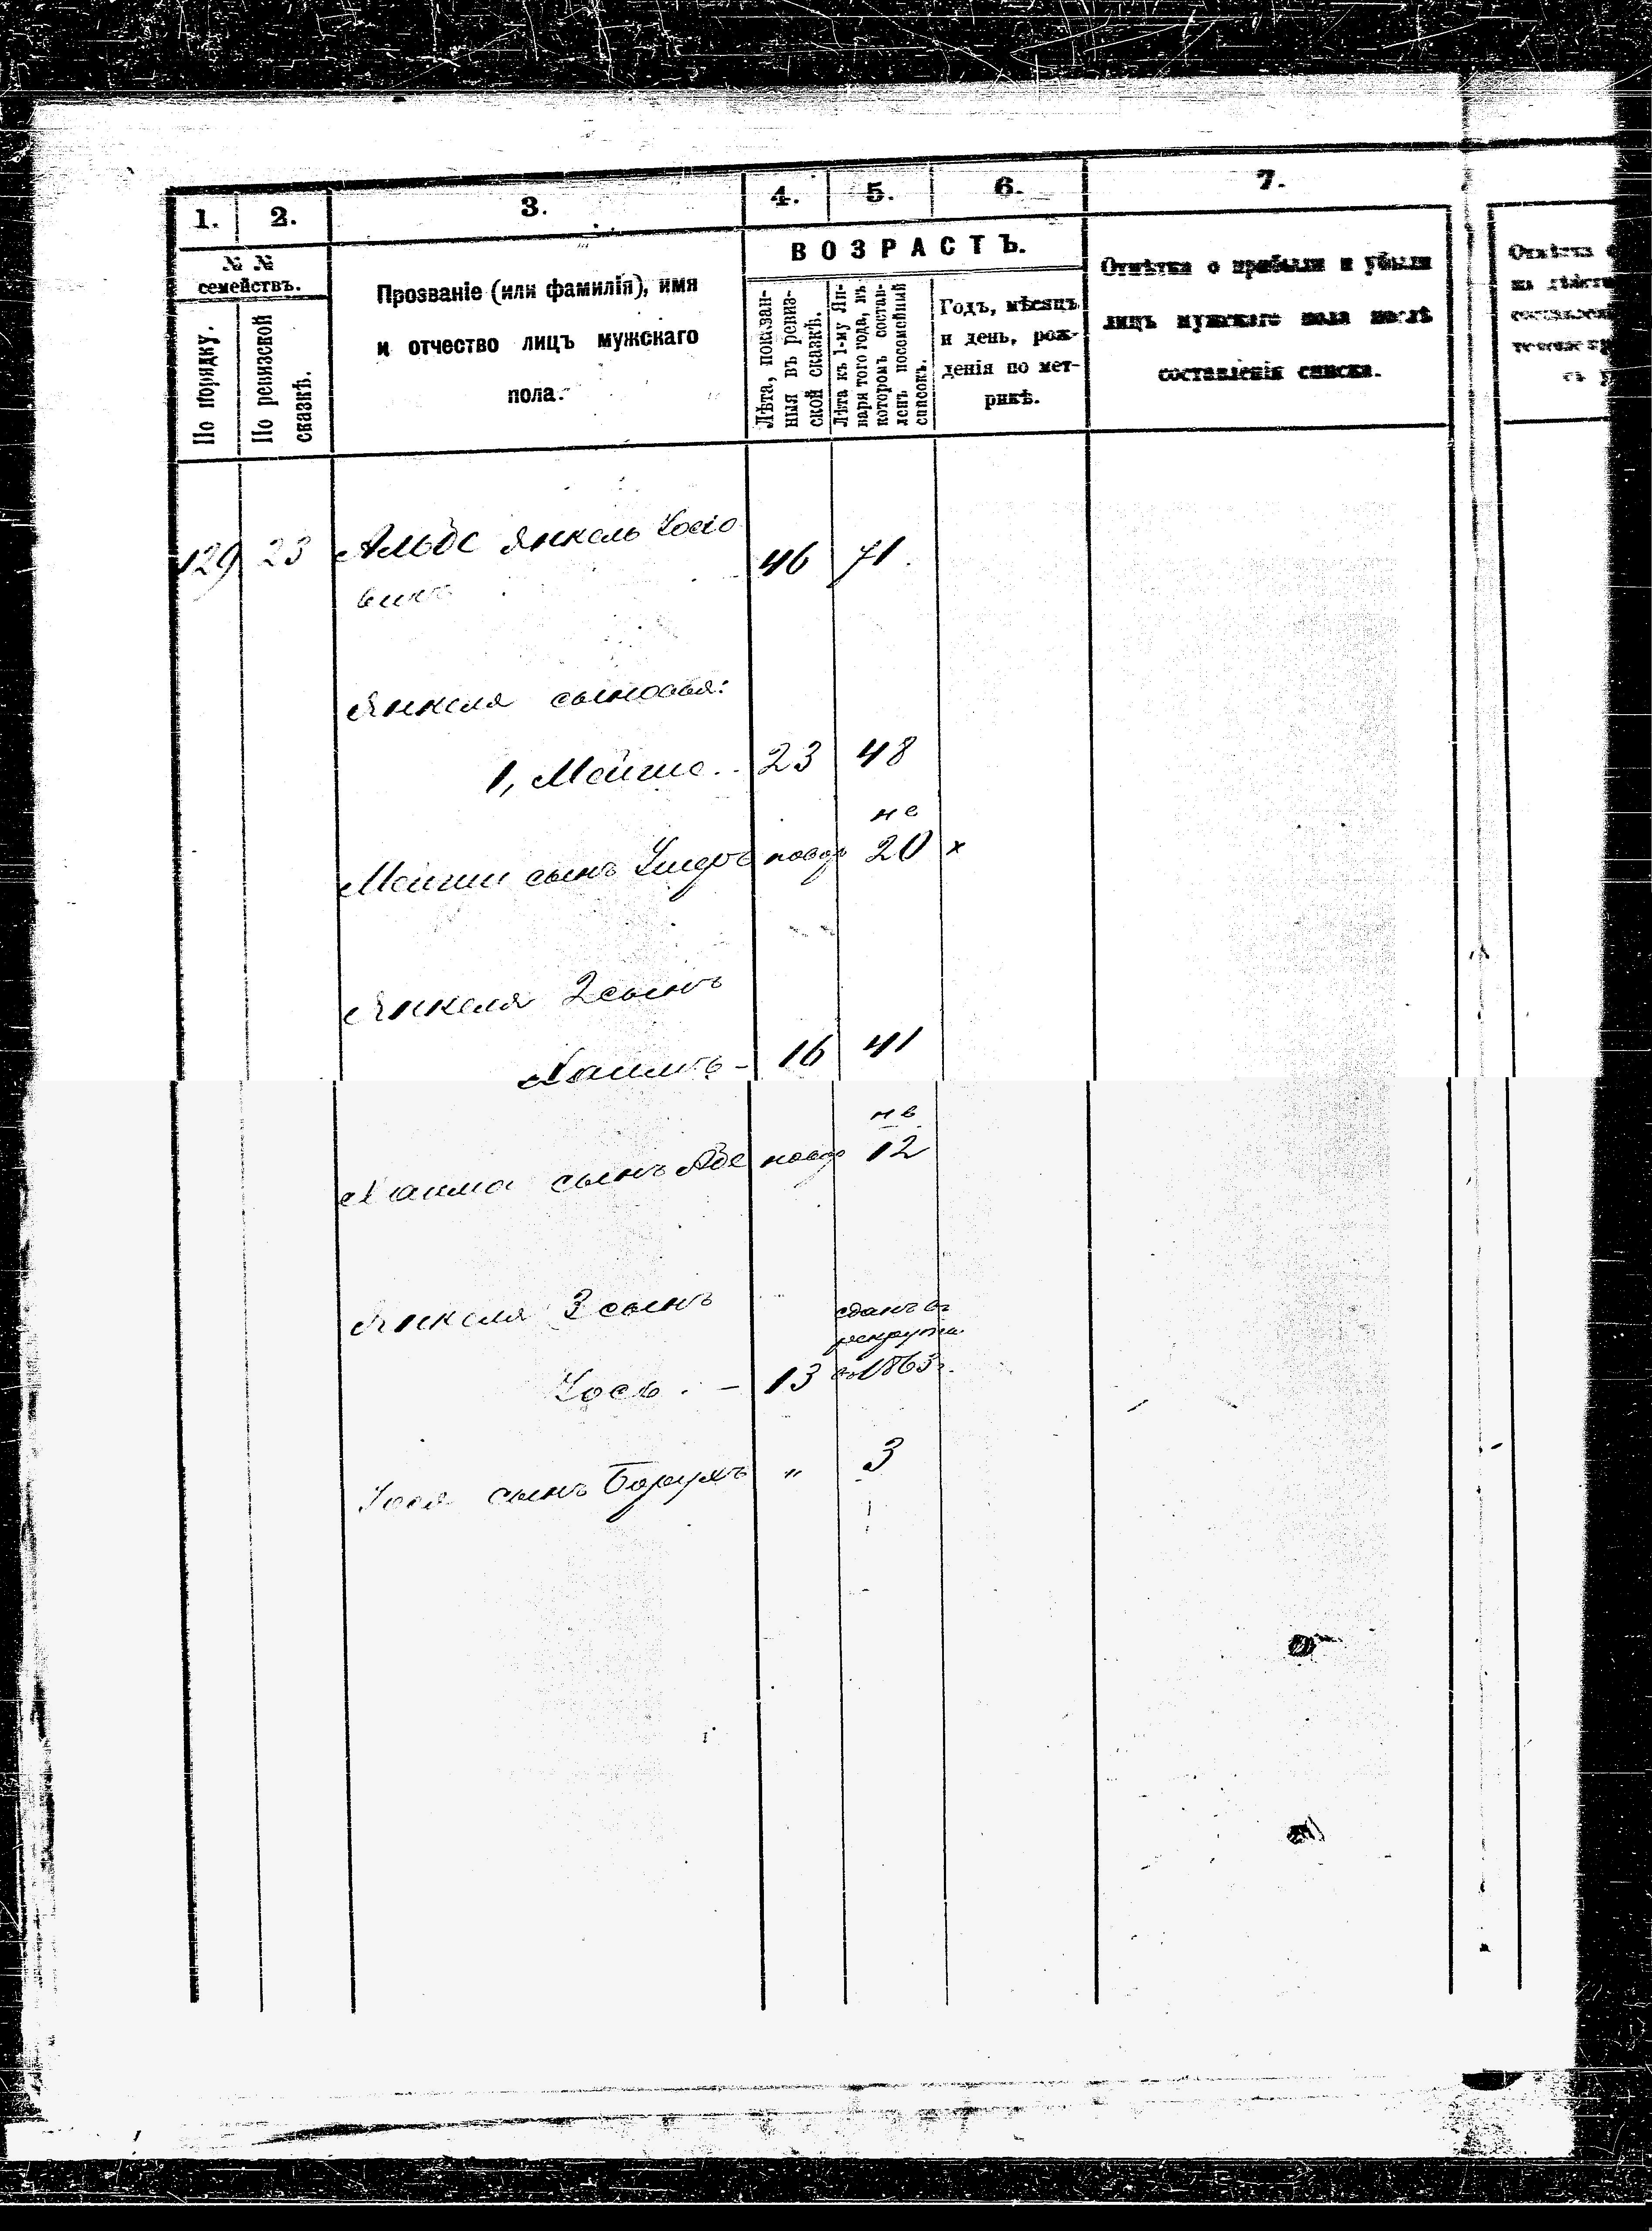 1. 2. 3. 4. 5. 6. 7.
№ №
семействъ.
По порядку.
По ревизской
сказкѣ.
Прозваніе (или фамилія), имя
и отчество лицъ мужскаго
пола.
ВОЗРАСТЪ.
Лѣта, показан-
ныя въ ревиз-
ской сказкѣ.
Лѣта къ 1-му Ян-
варя того года, въ
которомъ состав-
ленъ посемейный
списокъ.
Годъ, мѣсяцъ
и день, рож-
денія по мет-
рикѣ.
Отмѣтка о прибыли и убыли
лицъ мужскаго пола послѣ
составленія списка.
129 23 Янкель 46 71.
Янкеля сыновья:
1, Мойше.. 23 48
не
Мойши сынъ новор 20 x
Янкеля 2 сынъ
Хаимъ - 16 41
не
Хаима сынъ новор 12
Янкеля 3 сынъ
сданъ въ
рекруты
13 въ 1863 г.
сынъ Борухъ " 3